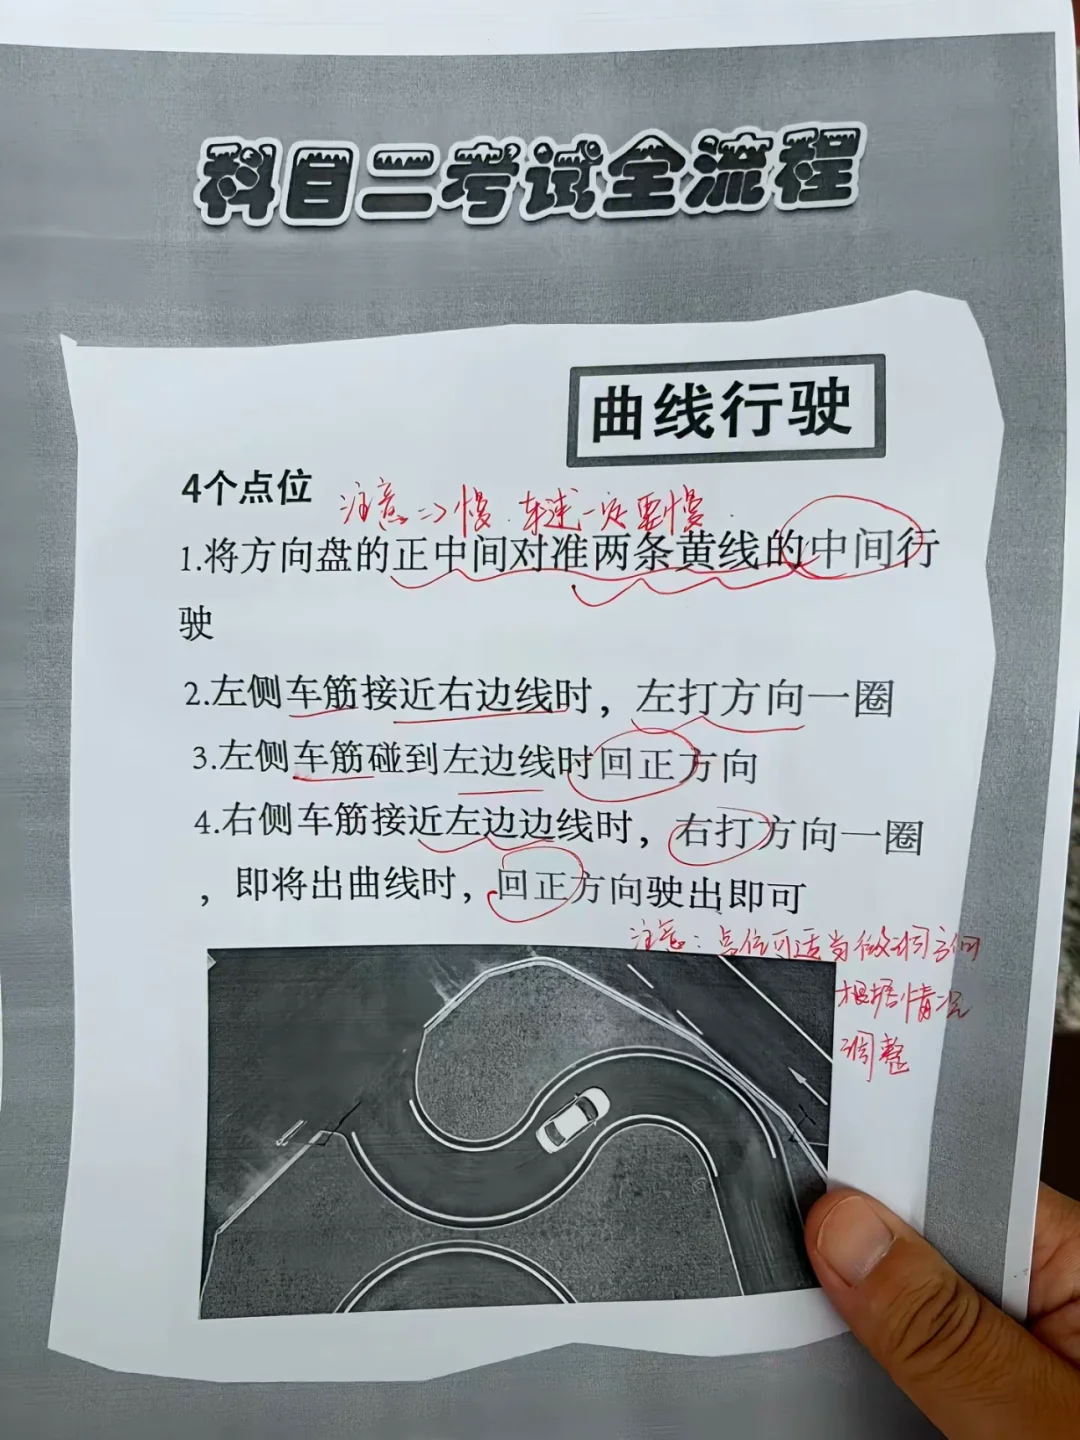 科目二考试全流程
曲线行驶
4个点位
注意 => 慢 车速一定要慢
1.将方向盘的正中间对准两条黄线的中间行
驶
2.左侧车筋接近右边线时，左打方向一圈
3.左侧车筋碰到左边线时回正方向
4.右侧车筋接近左边边线时，右打方向一圈
，即将出曲线时，回正方向驶出即可
注意：点位可适当微调方向
根据情况
调整